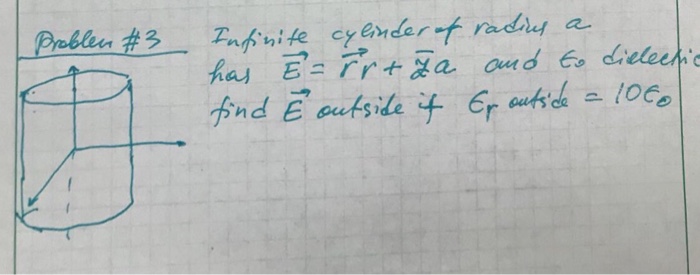 Problem #3 Infinite cylinder of radius a
has E⃗ = r⃗r + z̄a and ϵ₀ dielectric
find E⃗ outside if ϵr outside = 10ϵ₀